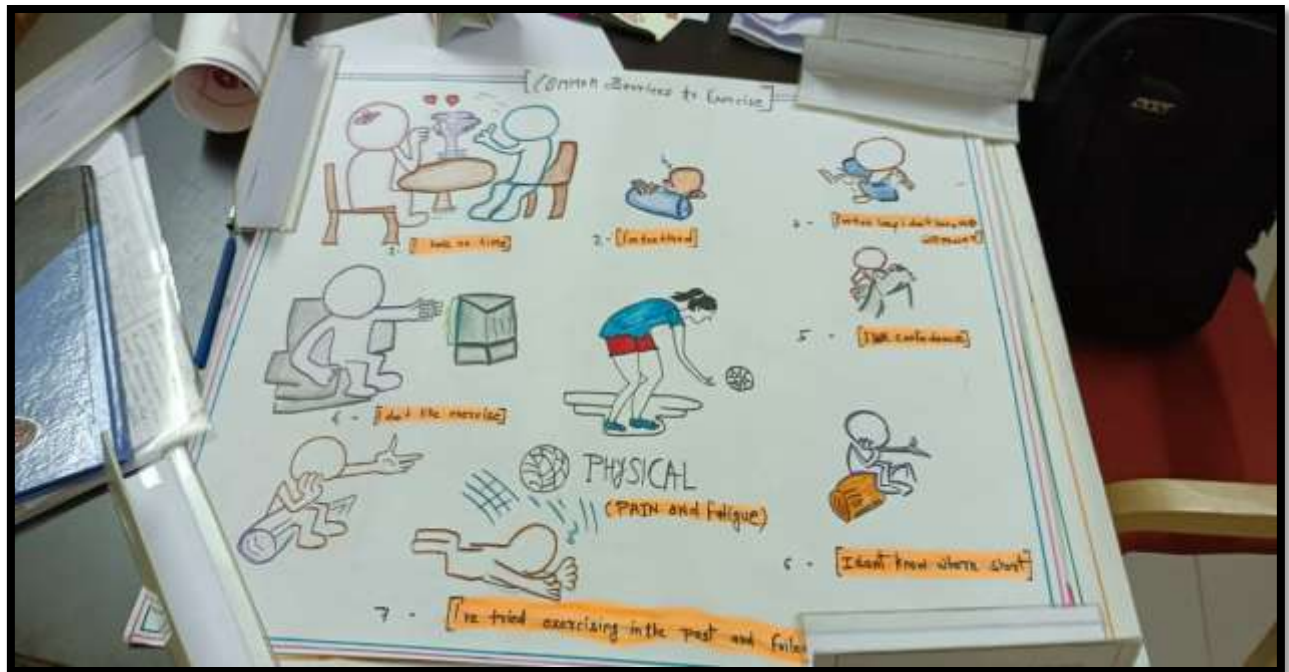 [Common Barriers to Exercise]
1- [I have no time]
2- [I'm too tired]
3- [I'm too lazy I don't have
4- [I don't like exercise]
5 - confidence]
PHYSICAL
(PAIN and Fatigue)
6 - [I don't know where start]
7 - [I've tried exercising in the past and failed
acer